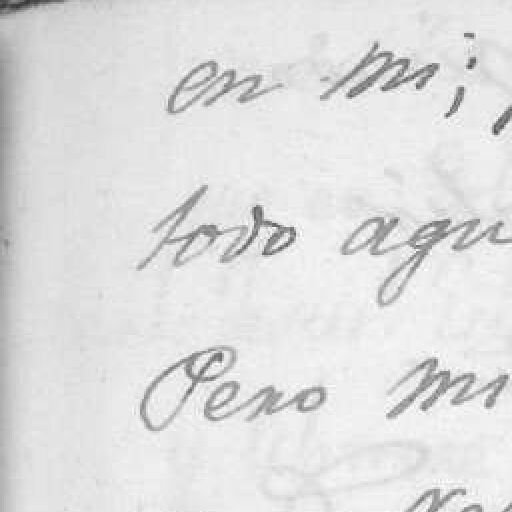 en mi;
todo aqu
Pero mi